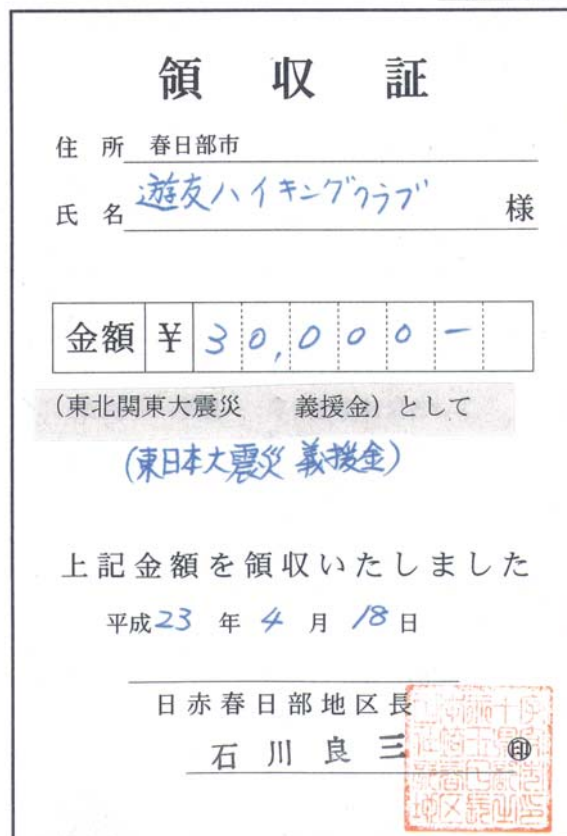 領収証
住所 春日部市
氏名 遊友ハイキングクラブ 様
金額 ¥ 30,000-
(東北関東大震災 義援金)として
(東日本大震災 義援金)
上記金額を領収いたしました
平成23年4月18日
日赤春日部地区長
石川良三 ㊞